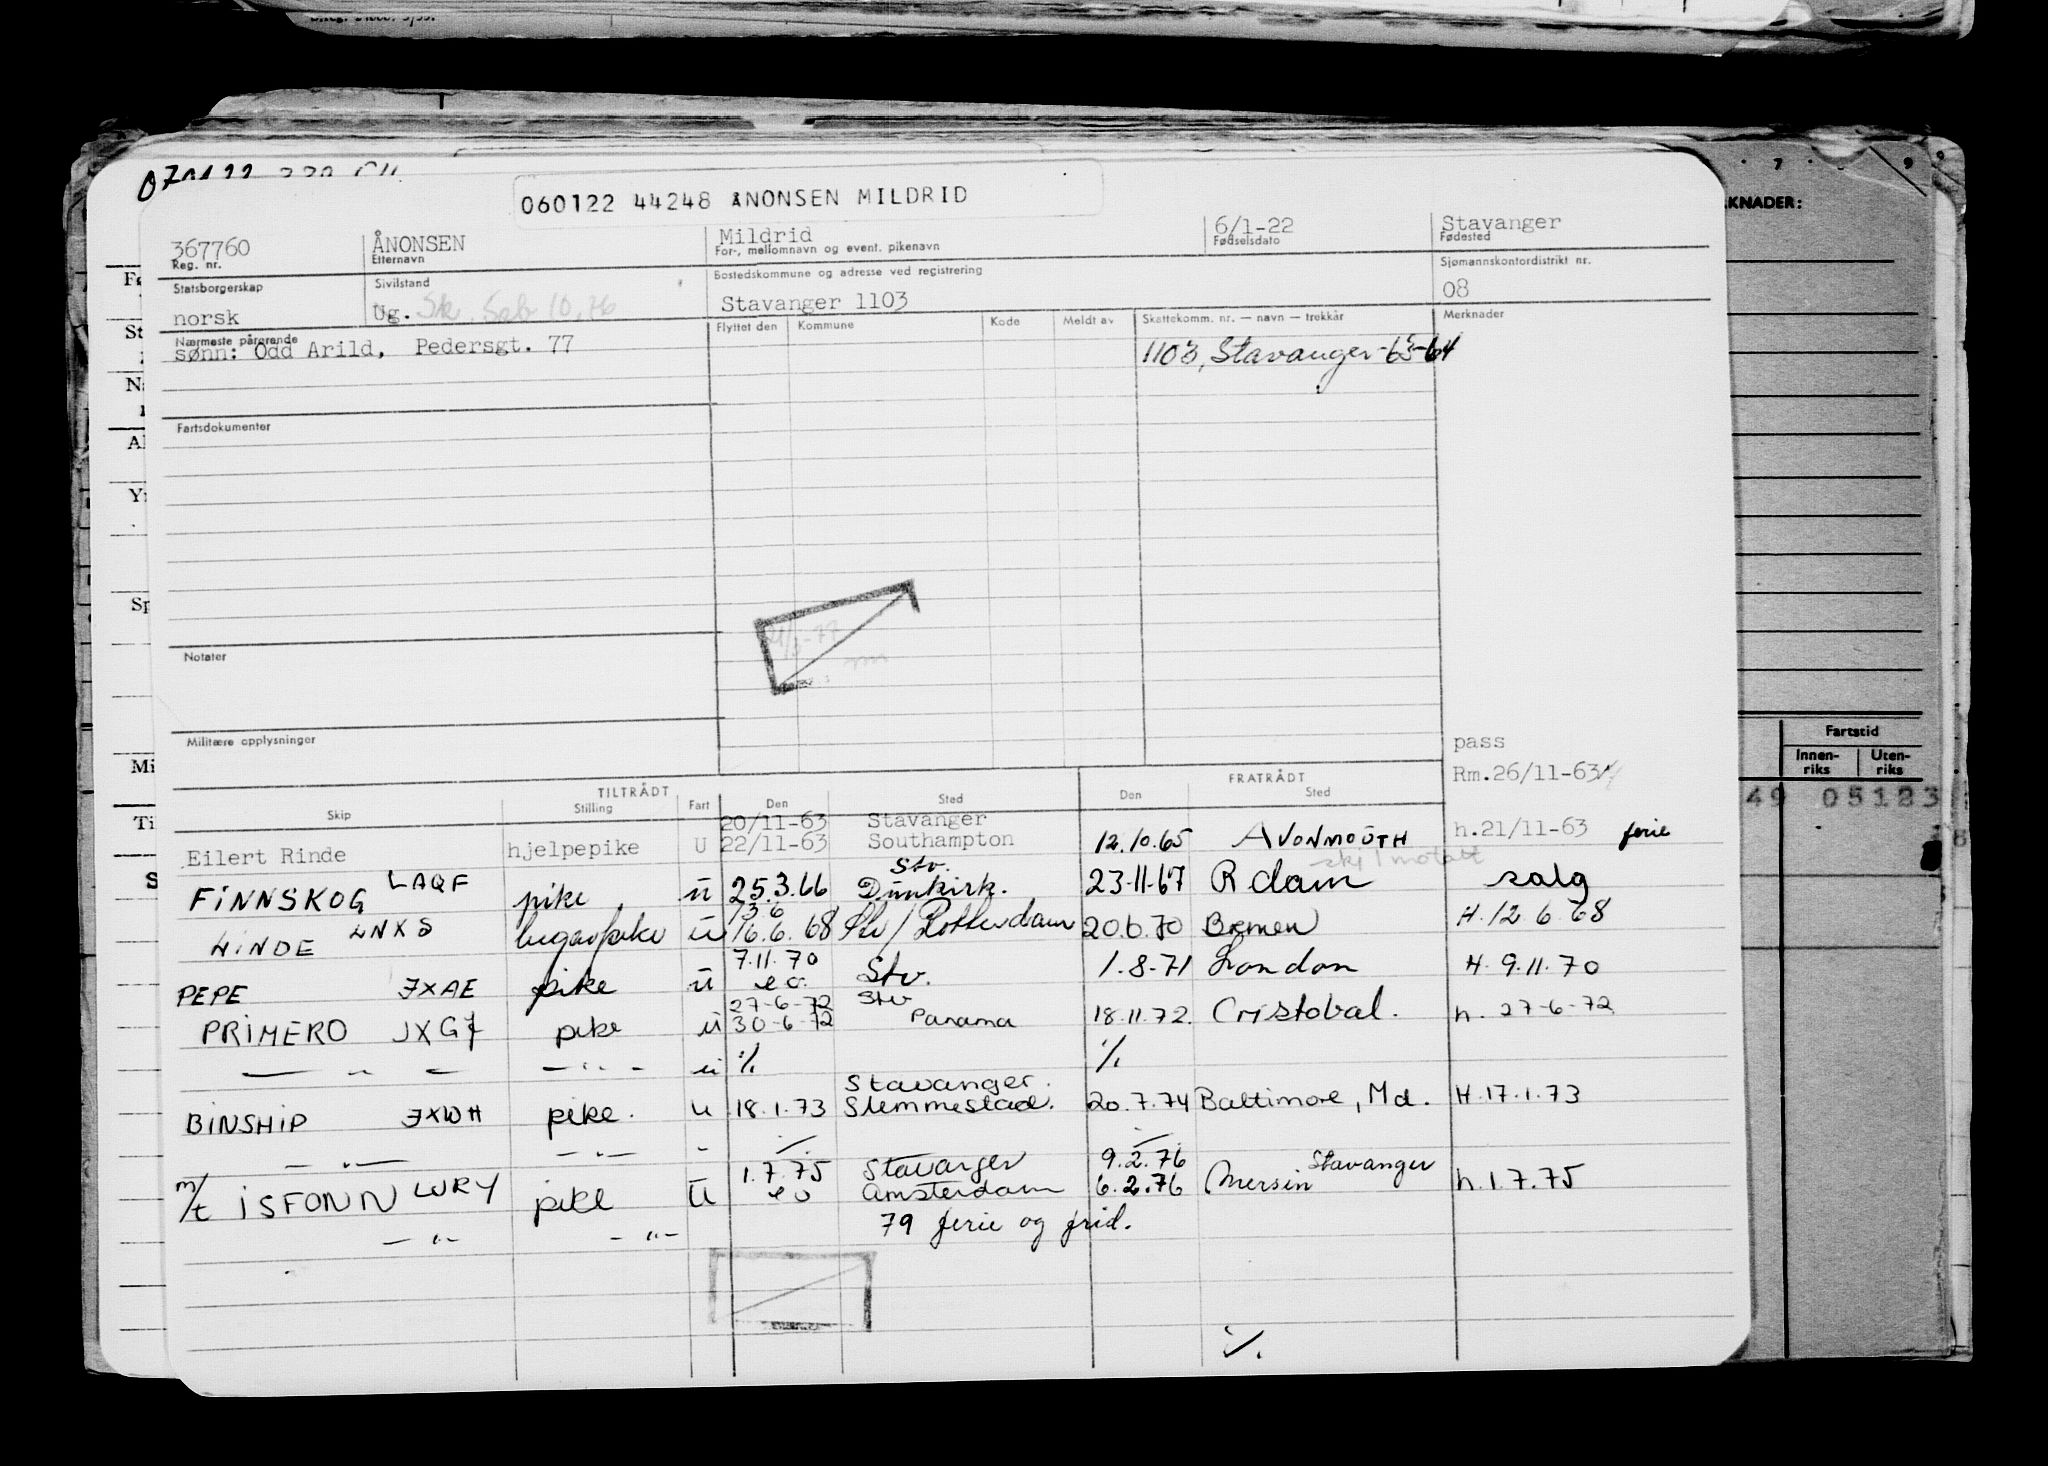 060122 44248 ÅNONSEN MILDRID
367760 ÅNONSEN Mildrid 6/1-22 Stavanger
Reg. nr. Etternavn For-, mellomnavn og event. pikenavn Fødselsdato Fødested
Statsborgerskap Sivilstand Bostedskommune og adresse ved registrering Sjømannskontordistrikt nr.
norsk Ug. Stavanger 1103 08
Nærmeste pårørende Flyttet den Kommune Kode Meldt av Skattekomm. nr. — navn — trekkår Merknader
sønn: Odd Arild, Pedersgt. 77 1103, Stavanger-65-64
Fartsdokumenter
Notater
Militære opplysninger
pass
Rm.26/11-63
TILTRÅDT FRATRÅDT
Skip Stilling Fart Den Sted Den Sted
20/11-63 Stavanger
Eilert Rinde hjelpepike U 22/11-63 Southampton 12.10.65 AVONMOUTH h.21/11-63 ferie
Stv.
FINNSKOG LAQF pike u 25.3.66 Dunkirk. 23-11-67 R dam salg
13.6
HINDE LNXS lugarpike u 16.6.68 Stv/Rotterdam 20.6.70 Bremen H.12.6.68
7.11.70
PEPE JXAE pike u e o. Stv. 1.8-71 London H. 9.11.70
27-6-72 Stv
PRIMERO JXGJ pike u 30-6-72 Panama 18.11.72. Cristobal. h. 27-6-72
— " — — " — u ./. ./.
Stavanger.
BINSHIP JXWH pike. u 18.1.73 Slemmestad. 20.7.74 Baltimore, Md. H.17.1.73
— " — — " — - ./. ./.
1.7.75 Stavanger 9.2.76 Stavanger
m/t ISFONN LURY pike U e o Amsterdam 6.2.76 Mersin h.1.7.75
— " — — " — 79 ferie og frid.
./.
KNADER:
Fartstid
Innen-riks Uten-riks
49 05123